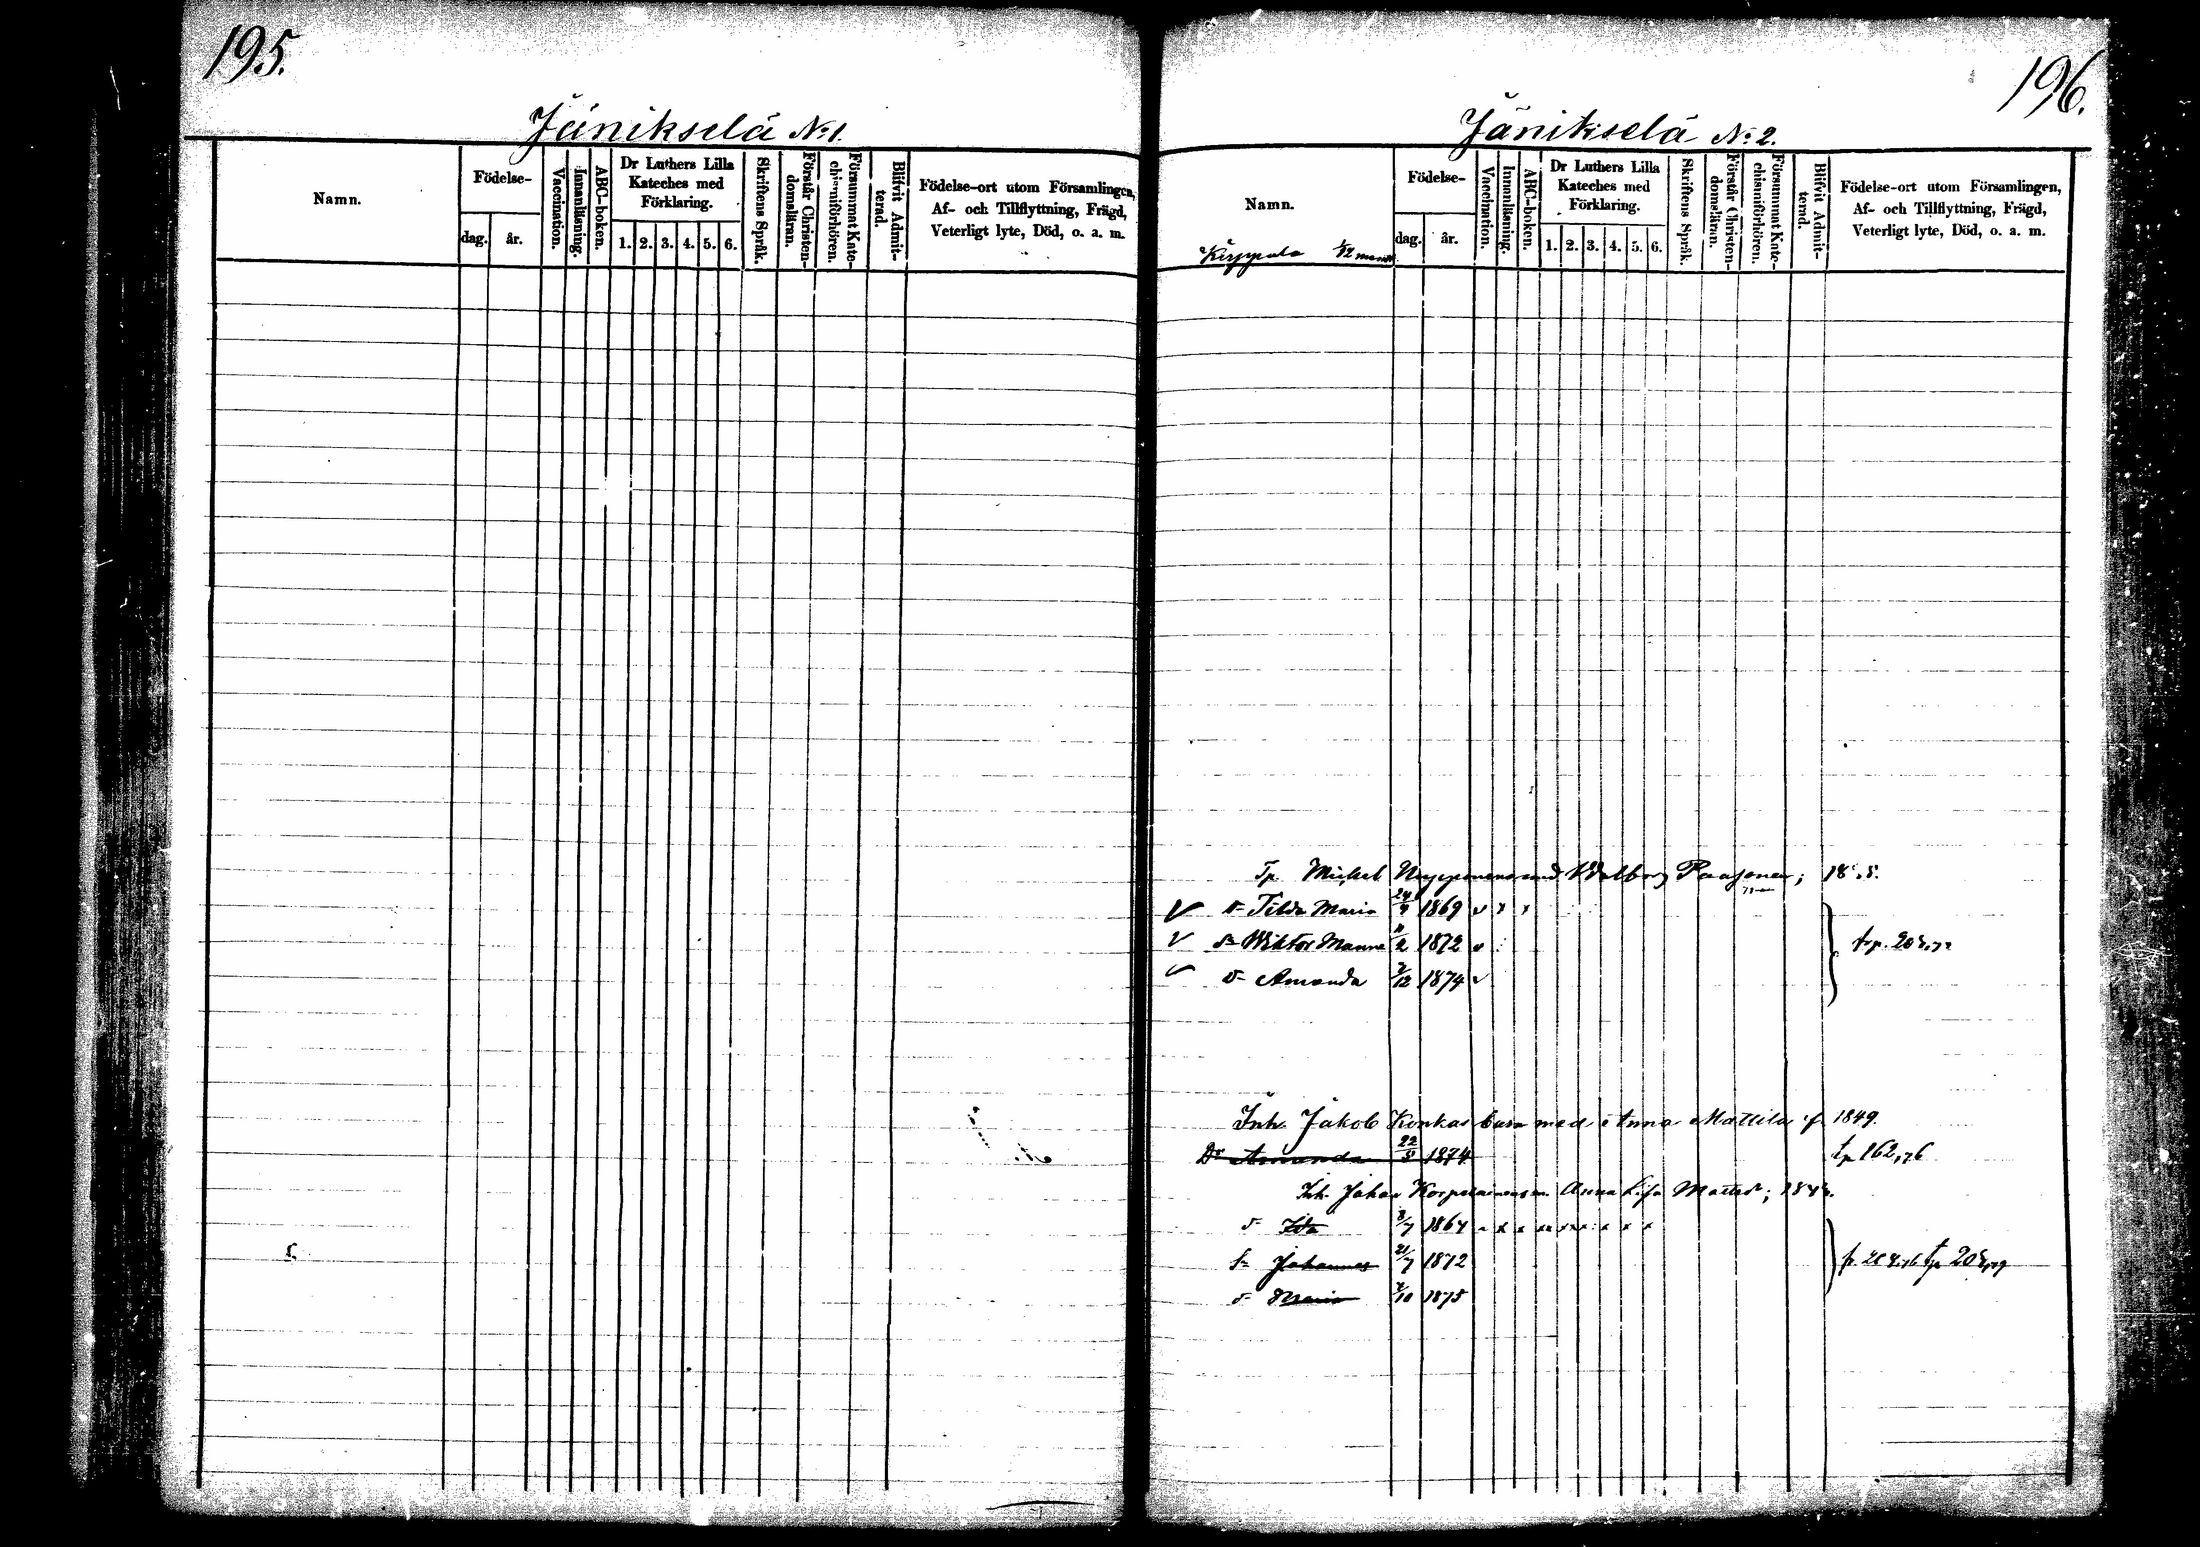 195.
Jänikselä No 1.
Namn.
Födelse-
dag.
år.
Vaccination.
Innanläsning.
ABC-boken.
Dr Luthers Lilla
Kateches med
Förklaring.
1. 2. 3. 4. 5. 6.
Skriftens Språk.
Förstår Christen-
domsläran.
Försummat Kate-
chismiförhören.
Blifvit Admit-
terad.
Födelse-ort utom Församlingen,
Af- och Tillflyttning, Frägd,
Veterligt lyte, Död, o. a. m.
196.
Jänikselä No 2.
Namn.
Födelse-
dag.
år.
Vaccination.
Innanläsning.
ABC-boken.
Dr Luthers Lilla
Kateches med
Förklaring.
1. 2. 3. 4. 5. 6.
Skriftens Språk.
Förstår Christen-
domsläran.
Försummat Kate-
chismiförhören.
Blifvit Admit-
terad.
Födelse-ort utom Församlingen,
Af- och Tillflyttning, Frägd,
Veterligt lyte, Död, o. a. m.
Tp Michel Paasonen;
Tilda Maria 24/4 1869
Wiktor Manne 1872
Amanda 1874
Inh. Jakob Konkas barn med Anna Mattila f 1849.
Dr Amanda 22 1874 tp 162,76
Inh. Johan Anna Lisa
Ida 8/7 1867
s. Johannes 21/7 1872
Maria 1875